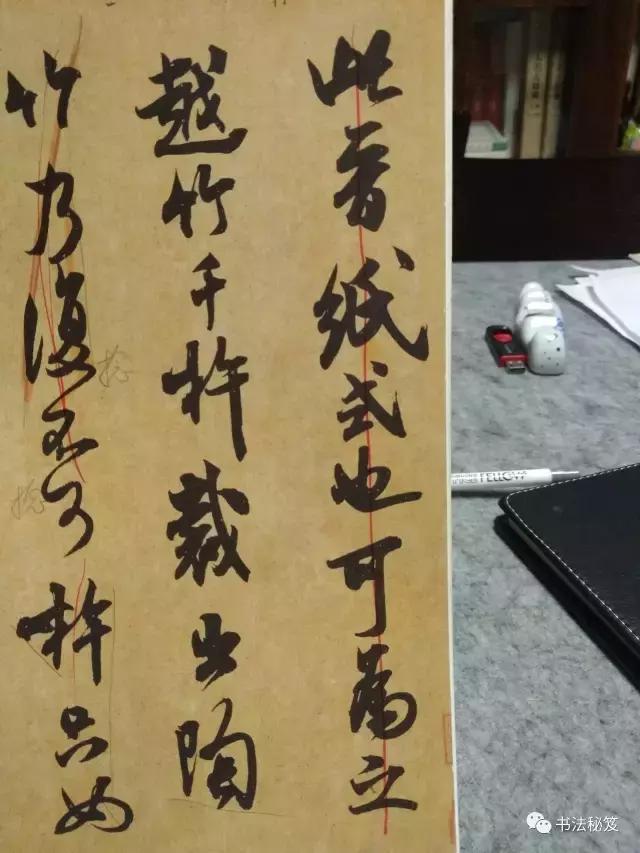 此晉紙式也可為之
越竹千杵裁出陶
竹乃復不可杵只如
FELLOW
书法秘笈